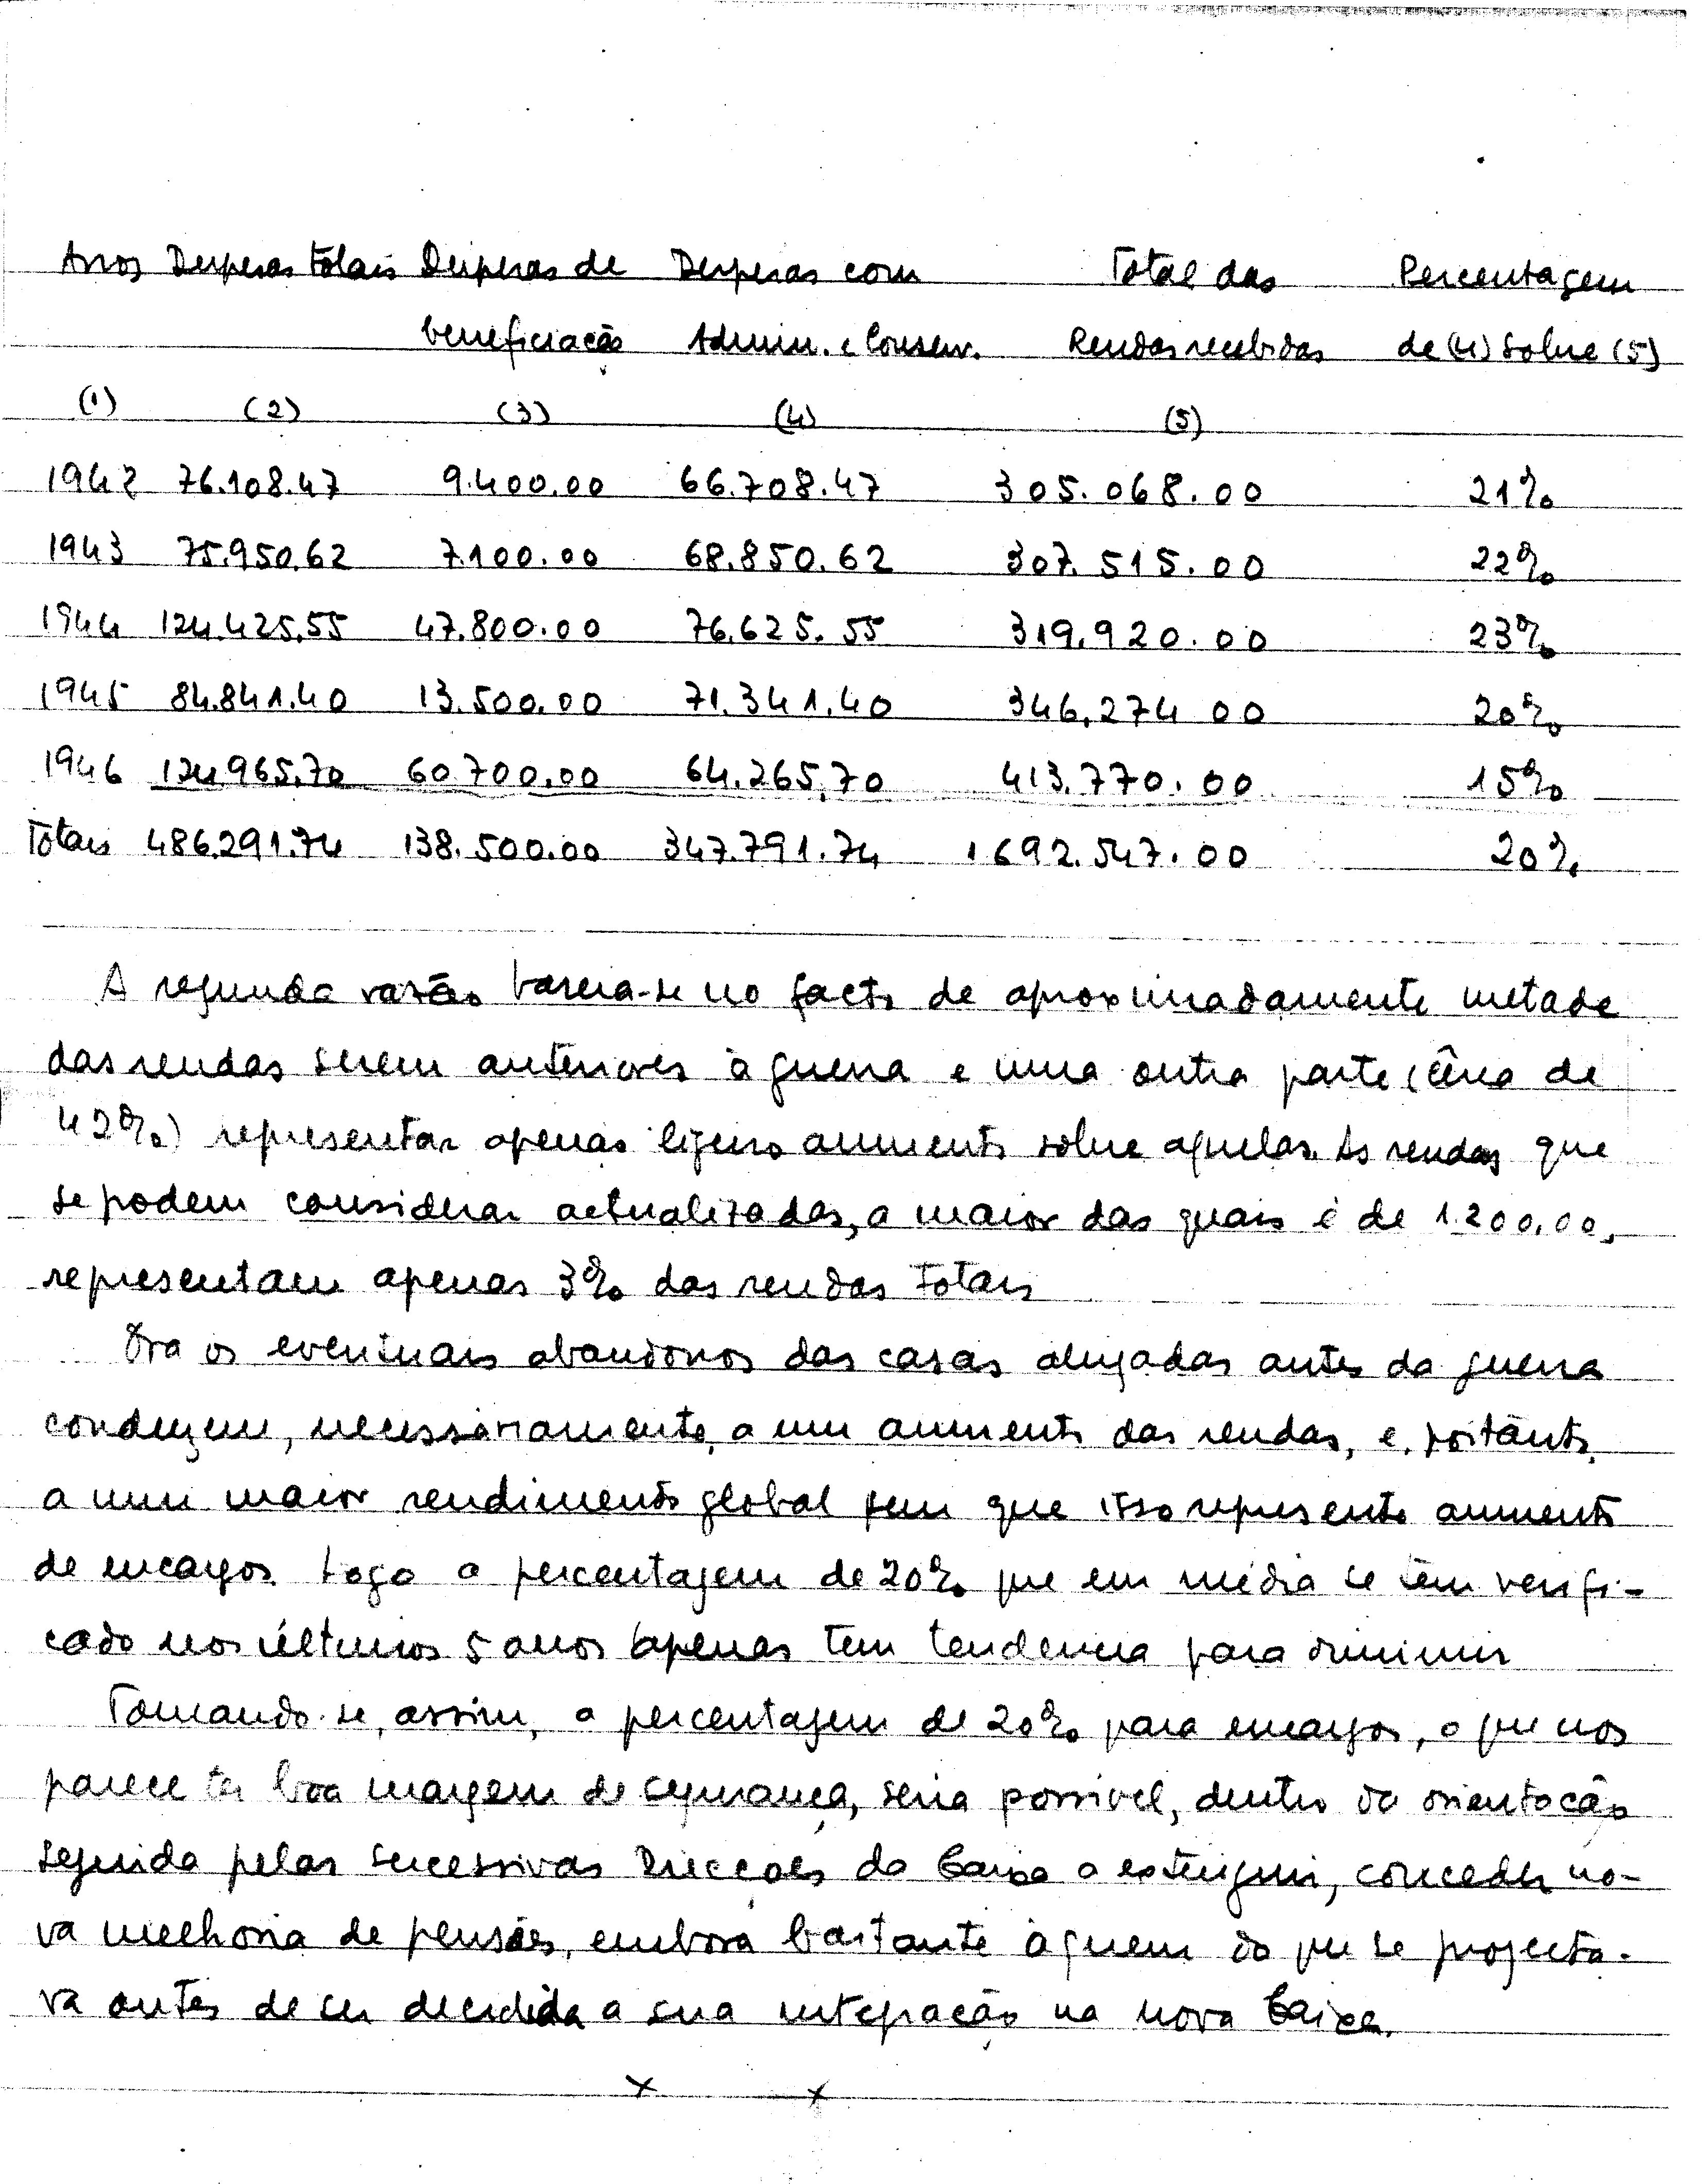 Anos Despesas totais Despesas de Despesas com Total das Percentagem
beneficiação Admin. e Conserv. Rendas recebidas de (4) sobre (5)
(1) (2) (3) (4) (5)
1942 76.108.47 9.400.00 66.708.47 305.068.00 21%
1943 75.950.62 7.100.00 68.850.62 307.515.00 22%
1944 124.425,55 47.800.00 76.625.55 319.920.00 23%
1945 84.841.40 13.500.00 71.341.40 346.274 00 20%
1946 124.965,70 60.700,00 64.265,70 413.770.00 15%
Totais 486.291.74 138.500.00 347.791.74 1692.547.00 20%
A segunda razão baseia-se no facto de aproximadamente metade
das rendas serem anteriores à guerra e uma outra parte (cêrca de
42%) representar apenas ligeiro aumento sobre aquelas. As rendas que
se podem considerar actualizadas, a maior das quais é de 1.200,00,
representam apenas 3% das rendas totais
Ora os eventuais abandonos das casas alugadas antes da guerra
conduzem, necessàriamente, a um aumento das rendas, e, portanto,
a um maior rendimento global sem que isso represente aumento
de encargos. Logo a percentagem de 20% que em média se têm verifi-
cado nos últimos 5 anos apenas tem tendencia para diminuir
Tomando-se, assim, a percentagem de 20% para encargos, o que nos
parece ter boa margem de segurança, seria possivel, dentro da orientação
seguida pelas sucessivas Direcções da Caixa a extinguir, conceder no-
va melhoria de pensões, embora bastante àquem do que se projecta-
va antes de ser decidida a sua integração na nova Caixa.
x x